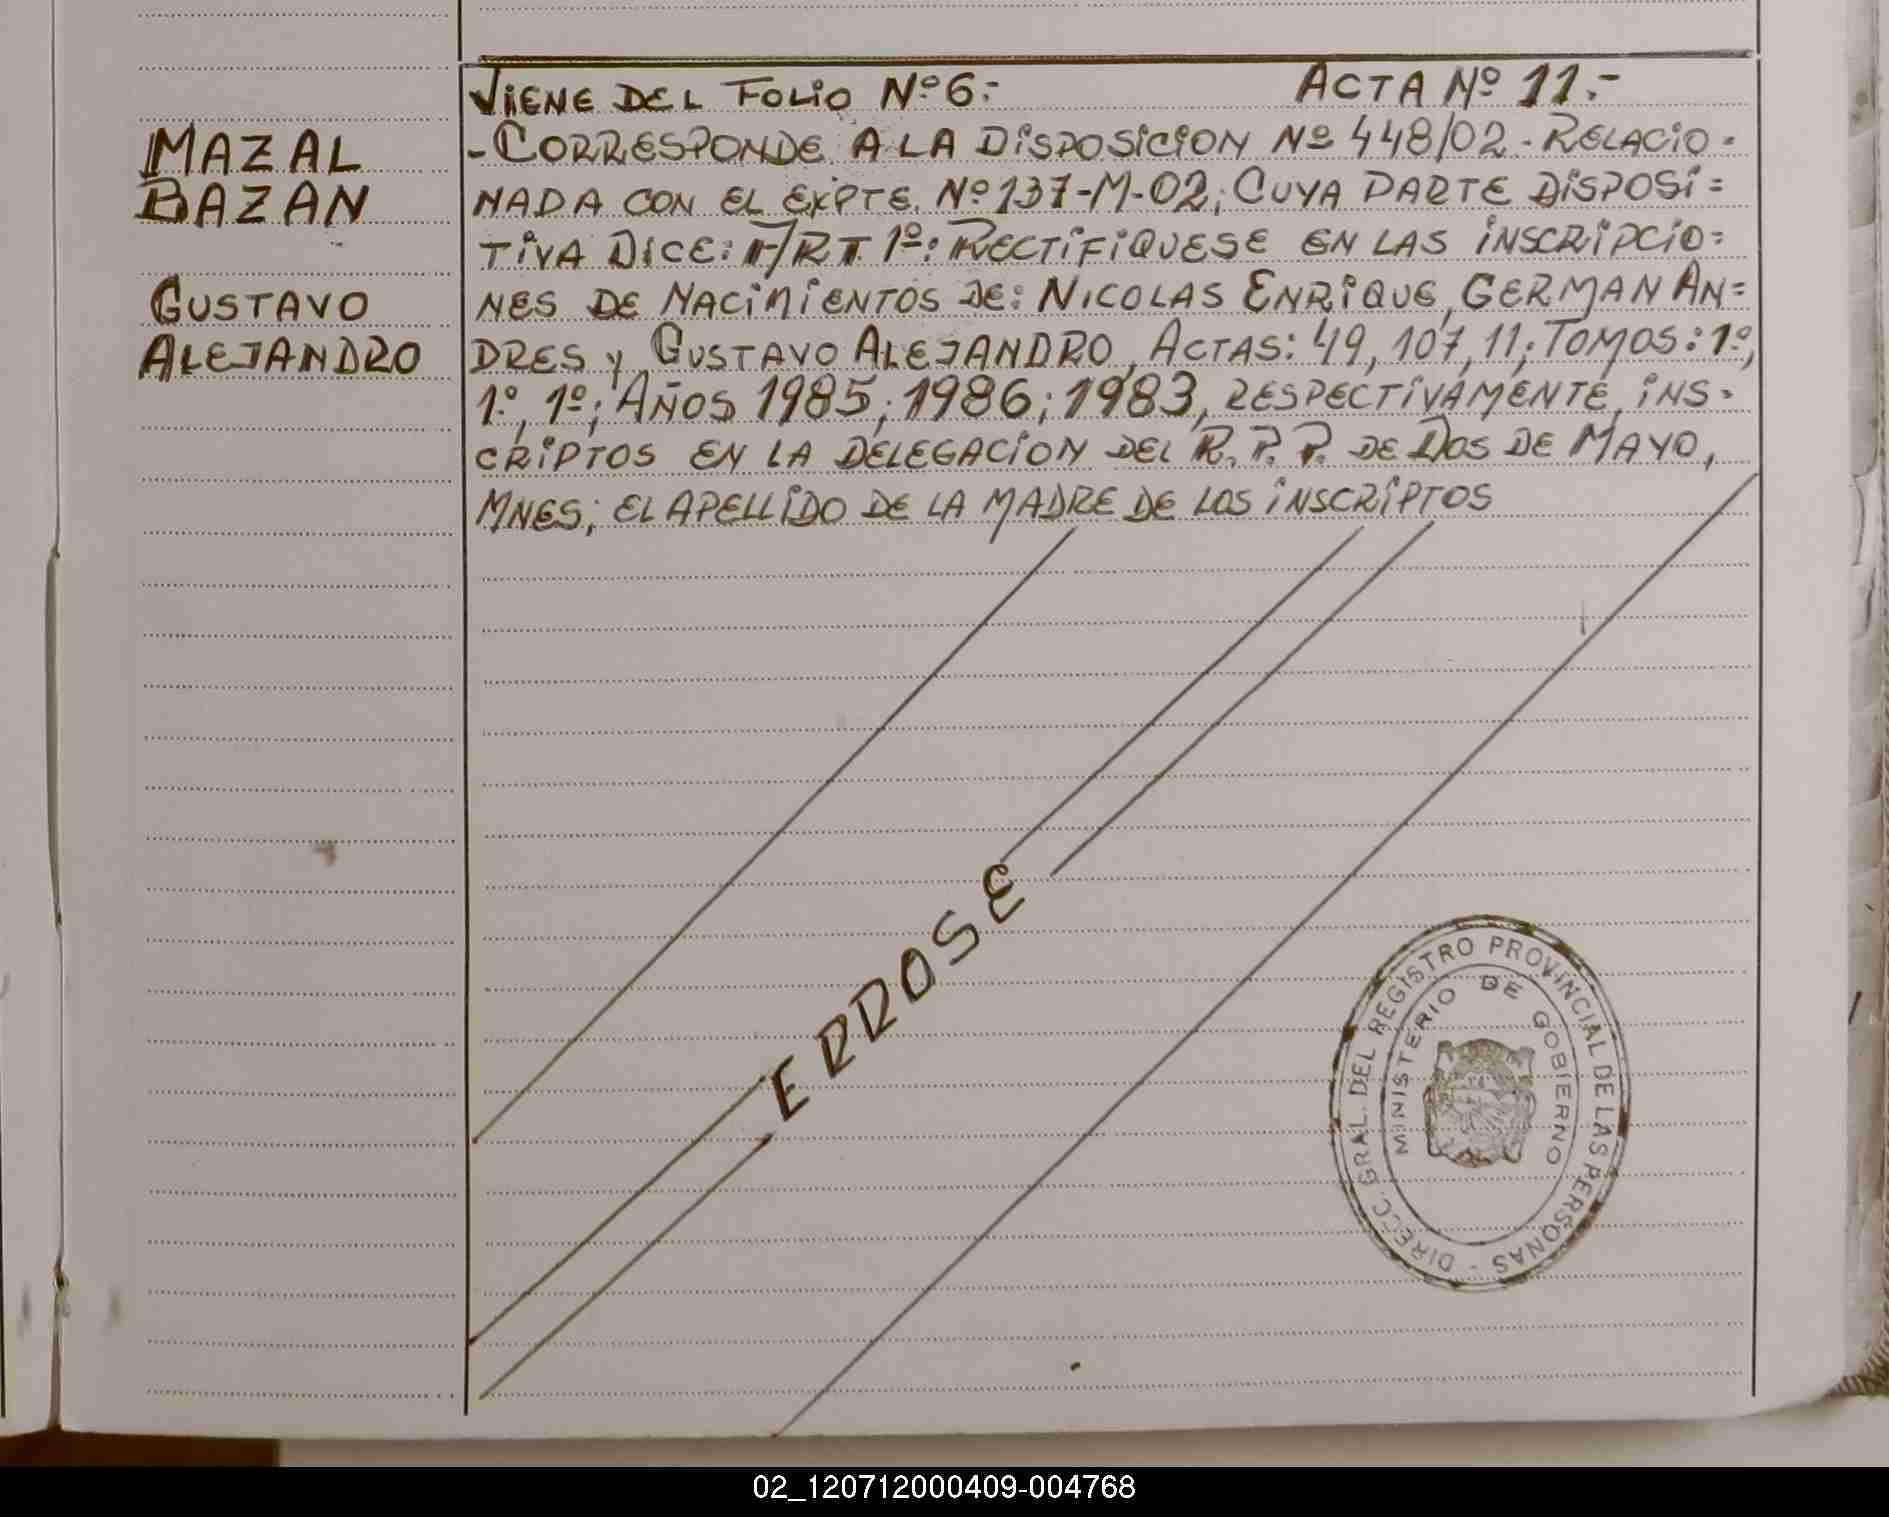 VIENE DEL FOLIO Nº 6:- ACTA Nº 11.-
MAZAL
BAZAN
GUSTAVO
ALEJANDRO
- CORRESPONDE A LA DISPOSICION Nº 448/02 - RELACIO-
NADA CON EL EXPTE. Nº 137-M-02; CUYA PARTE DISPOSI=
TIVA DICE: ART. 1º: RECTIFIQUESE EN LAS INSCRIPCIO=
NES DE NACIMIENTOS DE: NICOLAS ENRIQUE, GERMAN AN=
DRES y GUSTAVO ALEJANDRO, ACTAS: 49, 107, 11; TOMOS: 1º,
1º, 1º; AÑOS 1985; 1986; 1983, RESPECTIVAMENTE, INS-
CRIPTOS EN LA DELEGACION DEL R.P.P. DE DOS DE MAYO,
MNES; EL APELLIDO DE LA MADRE DE LOS INSCRIPTOS
ERROSE
DIRECC. GRAL. DEL REGISTRO PROVINCIAL DE LAS PERSONAS -
MINISTERIO DE GOBIERNO
02_120712000409-004768